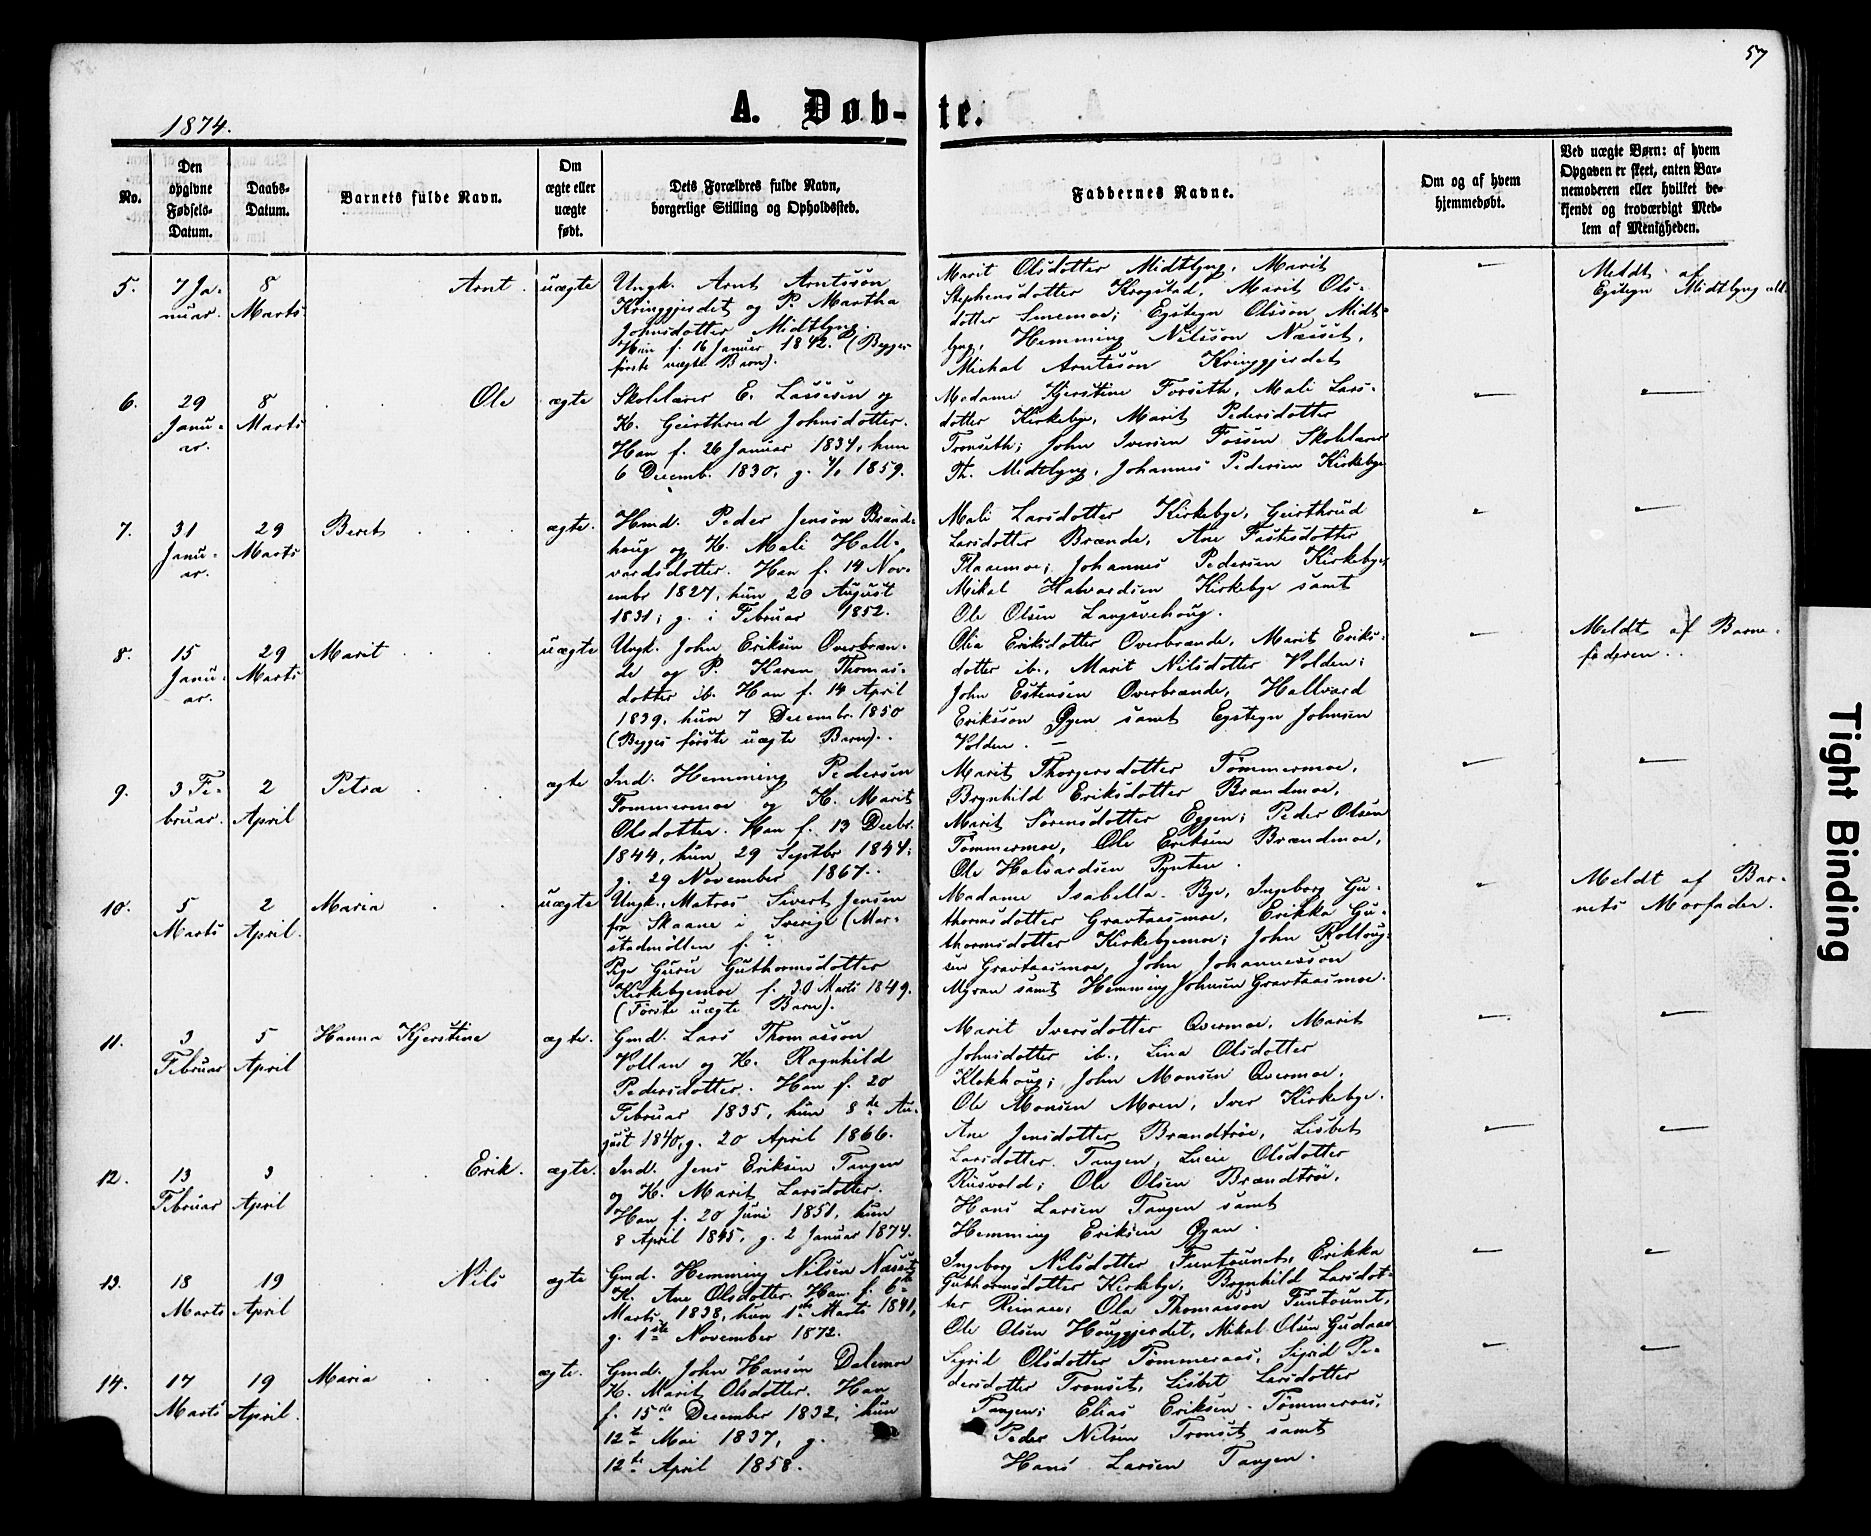 57
1874.
A. Døb-te.
No.
Den opgivne Fødsels-Datum.
Daabs-Datum.
Barnets fulde Navn.
Om ægte eller uægte født.
Dets Forældres fulde Navn, borgerlige Stilling og Opholdssted.
Faddernes Navne.
Om og af hvem hjemmedøbt.
Ved uægte Børn: af hvem Opgaven er skeet, enten Barnemoderen eller hvilket bekjendt og troværdigt Medlem af Menigheden.
5.
7 Ja-
nuar.
8
Marts
Arnt.
uægte
Ungk. Arnt Arntsson
Kringgjerdet og P. Martha
Johnsdotter Midtlyng.
Hun f. 16 Januar 1842. (Begges
første uægte Barn).
Marit Olsdotter Midtlyng, Marit
Stephensdotter Krogstad, Marit Ols-
dotter Smemoe; Egstegn Olsson Midt-
lyng, Hemming Nilsson Næsset,
Michal Arntsson Kringgjerdet
Meldt af
Egstegn Midtlyng
6.
29
Janu-
ar.
8
Marts
Ole
ægte
Skolelærer E. Lassesen og
K. Geirthrud Johnsdotter.
Han f. 26 Januar 1834, hun
6 Decemb. 1830, g. 1859.
Madame Kjerstine Forseth, Mali Lars-
dotter Kirkebye, Marit Pedersdotter
Tronseth; John Iversen Fossen, Skolelærer
Th. Midtlyng, Johannes Pedersen Kirkebye
7.
31
Janu-
ar.
29
Marts
Beret
ægte.
Hmd. Peder Jenson Brænd-
houg og K. Mali Hall-
vardsdotter. Han f. 14 Nov-
embr 1827, hun 20 August
1831; g. i Februar 1852.
Mali Larsdotter Kirkebye, Geirthrud
Larsdotter Brænde, Ane Fastesdotter
Flaaemoe; Johannes Pedersen Kirkebye,
Mikal Halvardsen Kirkebye samt
Ole Olsen Langsvehoug.
8.
15
Janu-
ar.
29
Marts
Marit
uægte
Ungk. John Eriksen Overbræn-
de og P. Karen Thomas-
dotter ib. Han f. 14 April
1839, hun 7 Decembr. 1850
(Begges første uægte Barn).
Olia Eriksdotter Overbrænde, Marit Eriks-
dotter ib., Marit Nilsdotter Volden;
John Estensen Overbrænde, Hallvard
Eriksson Øyen samt Egstegn Johnsen
Volden.
Meldt af Barne-
faderen.
9.
3 Fe-
bruar.
2
April
Petra
ægte
Ind. Hemming Pedersen
Tømmermoe og K. Marit
Olsdotter. Han f. 13 Decbr.
1844, hun 29 Septbr 1844;
g. 29 November 1867.
Marit Thorgersdotter Tømmermoe,
Brynhild Eriksdotter Brændmoe,
Marit Sørensdotter Eggen; Peder Olsen
Tømmermoe, Ole Eriksen Brændmoe,
Ole Halvardsen Pynten.
10.
5
Marts
2
April.
Maria
uægte
Ungk., Matros Sivert Jensen
fra Skaane i Sverige (Mar-
stadmöllen f. ?
Pige Guru Guthormsdotter
Kirkebyemoe f. 30 Marts 1849.
(Første uægte Barn).
Madame Isabella Bye, Ingeborg Gu-
thormsdotter Gravraasmoe, Erikka Gu-
thormsdotter Kirkebyemoe; John Rolloug-
sen Gravraasmoe, John Johannesson
Myran samt Hemming Johnsen Gravraasmoe.
Meldt af Bar-
nets Morfader.
11.
3
Februar
5
April
Hanna Kjerstine
ægte.
Gmd. Lars Thomasson
Vollan og K. Ragnhild
Pedersdotter. Han f. 20
Februar 1835, hun 8de Au-
gust 1840, g. 20 April 1866.
Marit Iversdotter Overmoe, Marit
Johnsdotter ib., Lina Olsdotter
Klokhoug; John Monsen Overmoe,
Ole Monsen Moen, Iver Kirkebye.
12.
13
Februar
3
April
Erik.
ægte.
Ind. Jens Eriksen Tangen
og K. Marit Larsdotter.
Han f. 20 Juni 1851, hun
8 April 1845, g. 2 Januar 1874.
Ane Jensdotter Brændtrøe, Lisbet
Larsdotter Tangen, Lucie Olsdotter
Rusvold; Ole Olsen Brændtrøe,
Hans Larsen Tangen samt
Hemming Eriksen Øyan.
13.
18
Marts
19
April
Nils
ægte
Gmd. Hemming Nilsen Næsset,
K. Ane Olsdotter. Han f. 6te
Marts 1838, hun 1ste Marts 1841,
g. 1ste November 1872.
Ingeborg Nilsdotter Funtaunet, Erikka
Guthormsdotter Kirkebye, Brynhild Larsdot-
ter Reinaas; Ola Thomasson Funtaunet,
Ole Olsen Houggjerdet, Mikal Olsen Gudaa
14.
17
Marts
19
April.
Maria
ægte.
Gmd. John Hansen Dalemoe
K. Marit Olsdotter. Han
f. 15de Desember 1832, hun
12te Mai 1837, g.
12te April 1858.
Sigrid Olsdotter Tømmeraas, Sigrid Pe-
dersdotter Tronset, Lisbet Larsdotter
Tangen; Elias Eriksen Tømmeraas,
Peder Nilsen Tronset samt
Hans Larsen Tangen.
Tight Binding